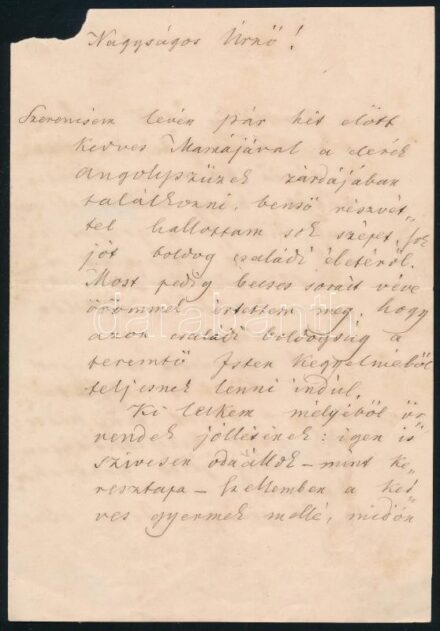 Nagyságos Úrnő!
Szerencsém levén pár hét előtt
kedves Mamájával a derék
angolszüzek zárdájában
találkozni, benső részvét„
tel hallottam sok szépet, sok
jót boldog családi életéről.
Most pedig becses sorait véve
örömmel értettem meg, hogy
azon családi boldogság a
teremtő Isten kegyelméből
teljesnek lenni indul.
Ki lelkem mélyéből ör„
vendek jóllétének: igen is
szivesen odaállok – mint ke„
resztapa – szellemben a ked„
ves gyermek mellé, midőn
darabanth